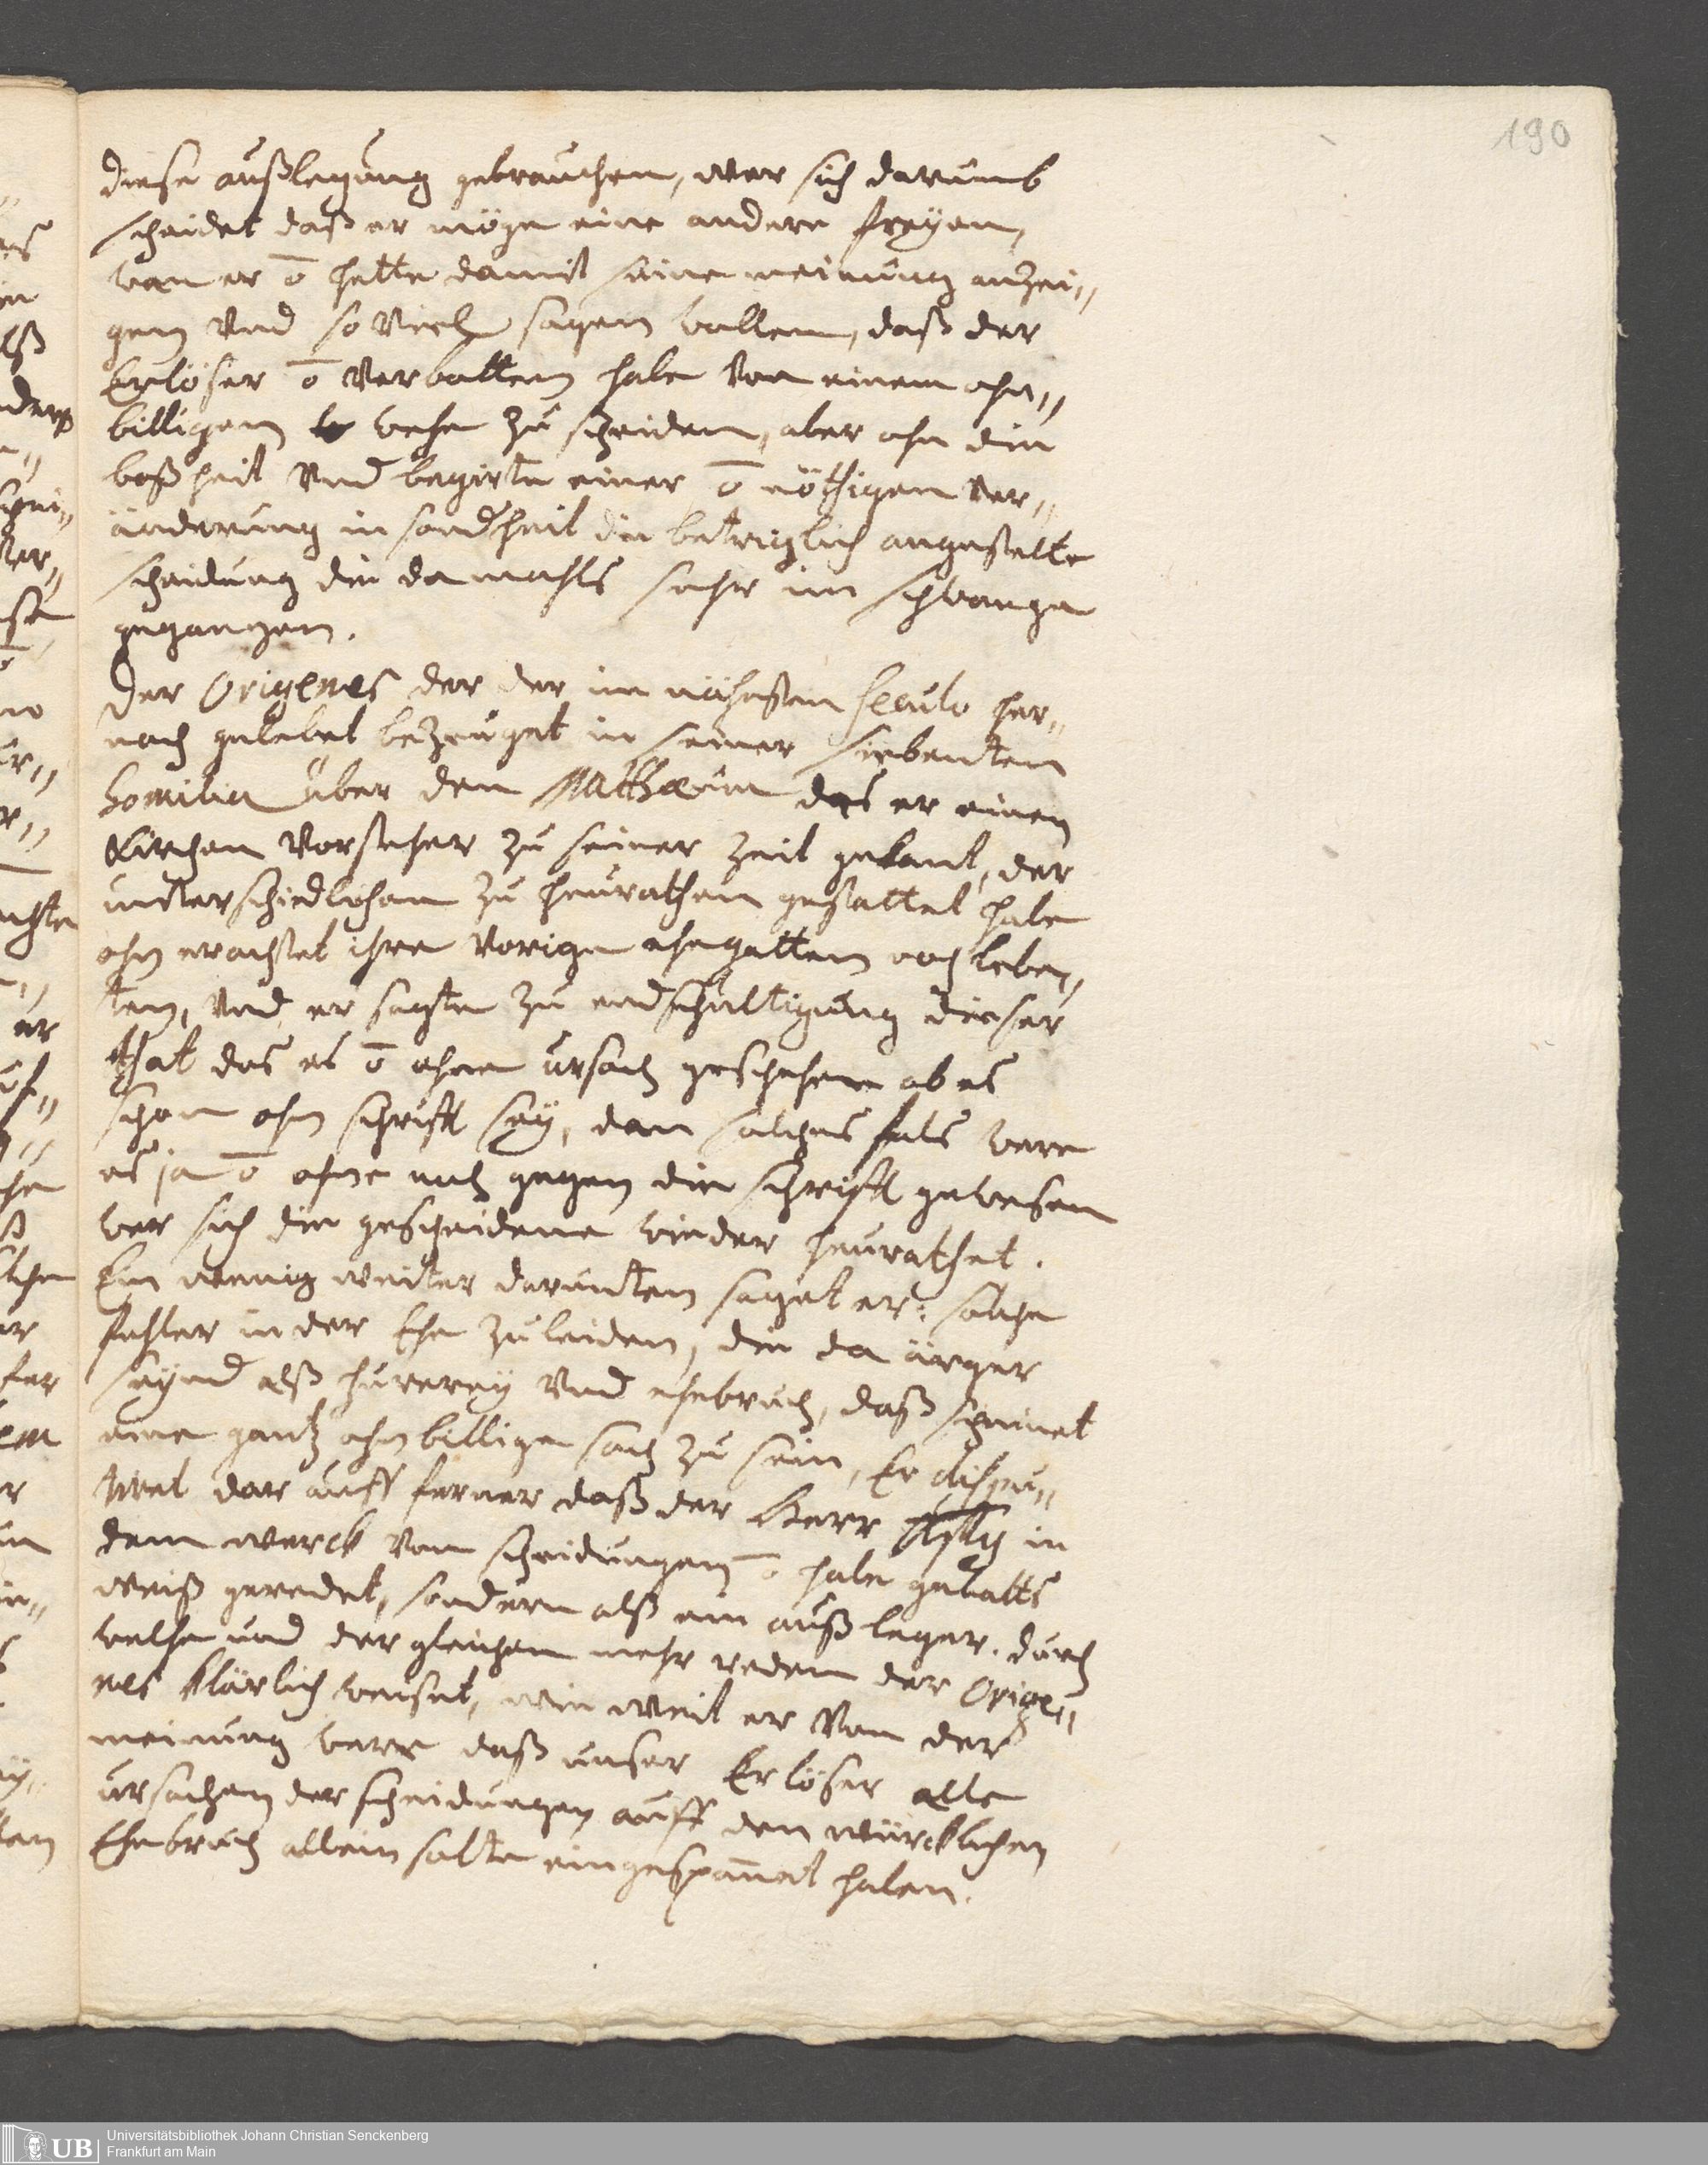 190
diese außlegung gebrauchen, wer sich darumb
scheidet daß er möge eine andere freyen,
wan er o hette damit seine meinung anzei„
gen Vnd so Viel sagen wollen, daß der
Erlöser o Verbotten habe Von einem ohn„
billigem wehe zu scheiden, aber ohn die
boßheit Vnd begirte einer o nöthigen Ver„
änderung in sondheit die betriglich angestelte
scheidung die damahls sehr im schwange
gegangen.
Der Origenes der der im nähesten seculo her„
nach gelebet bezeuget in seiner siebendten
homilia über den Matthæum das er einen
Kirchen Vorsteher zu seiner Zeit gekant, der
unterschiedlichen zu heurathen gestattet habe
ohn erachtet ihre Vorige ehegatten noch lebe„
ten, Vnd er sagte zu endschultigung dieser
that das es o ohne ursach geschehen ob es
schon ohn schrifft sey, dan solches fals were
es ja o ohne noch gegen die schrifft gewesen
wer sich die gescheidene wieder heurathet.
Ein wenig weiter darundten saget er: solche
fehler in der Ehe zu leiden, die da ärger
seynd alß hurerey Vnd ehebruch, daß scheinet
eine gantz ohn billige sach zu sein, Er dispu„
tiret dar auff ferner daß der Herr in
dem werck Von scheidungen o habe gebotts
weiß geredet, sondern alß ein außleger. durch
welche und der gleichen mehr reden der Orige„
nes klärlich weiset, wie weit er Von der
meinung were daß unser Erlöser alle
ursachen der scheidungen auff den würcklichen
Ehebruch allein solte eingespannet haben.
UB
Universitätsbibliothek Johann Christian Senckenberg
Frankfurt am Main